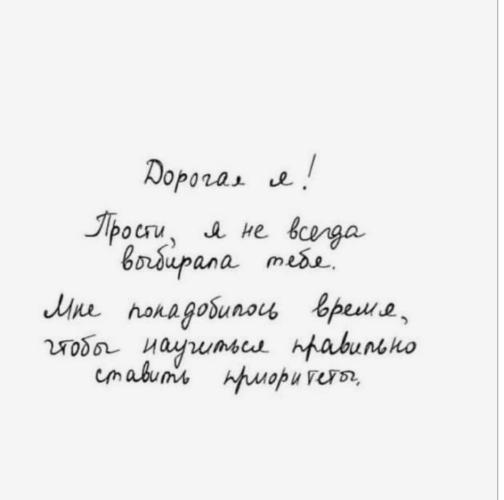 Дорогая я!
Прости, я не всегда
выбирала тебя.
Мне понадобилось время,
чтобы научиться правильно
ставить приоритеты.